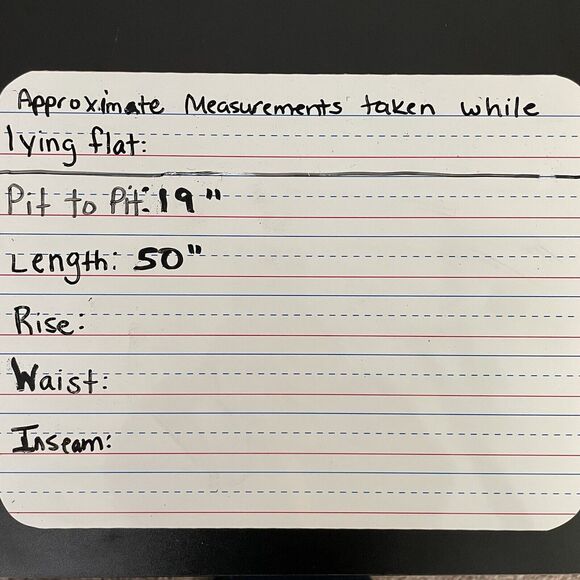 Approximate Measurements taken while
lying flat:
Pit to Pit: 19"
Length: 50"
Rise:
Waist:
Inseam: